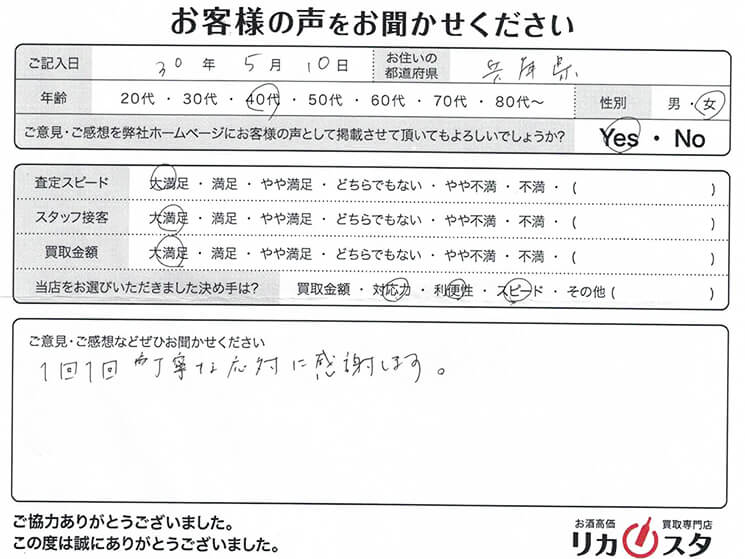 お客様の声をお聞かせください
ご記入日 30年 5月 10日 お住いの都道府県 兵庫県
年齢 20代 ・ 30代 ・ 40代 ・ 50代 ・ 60代 ・ 70代 ・ 80代〜 性別 男 ・ 女
ご意見・ご感想を弊社ホームページにお客様の声として掲載させて頂いてもよろしいでしょうか? Yes ・ No
査定スピード 大満足 ・ 満足 ・ やや満足 ・ どちらでもない ・ やや不満 ・ 不満 ・ ( )
スタッフ接客 大満足 ・ 満足 ・ やや満足 ・ どちらでもない ・ やや不満 ・ 不満 ・ ( )
買取金額 大満足 ・ 満足 ・ やや満足 ・ どちらでもない ・ やや不満 ・ 不満 ・ ( )
当店をお選びいただきました決め手は? 買取金額 ・ 対応力 ・ 利便性 ・ スピード ・ その他 ( )
ご意見・ご感想などぜひお聞かせください
1回1回 丁寧な応対に感謝します。
ご協力ありがとうございました。
この度は誠にありがとうございました。
お酒高価 買取専門店
リカスタ